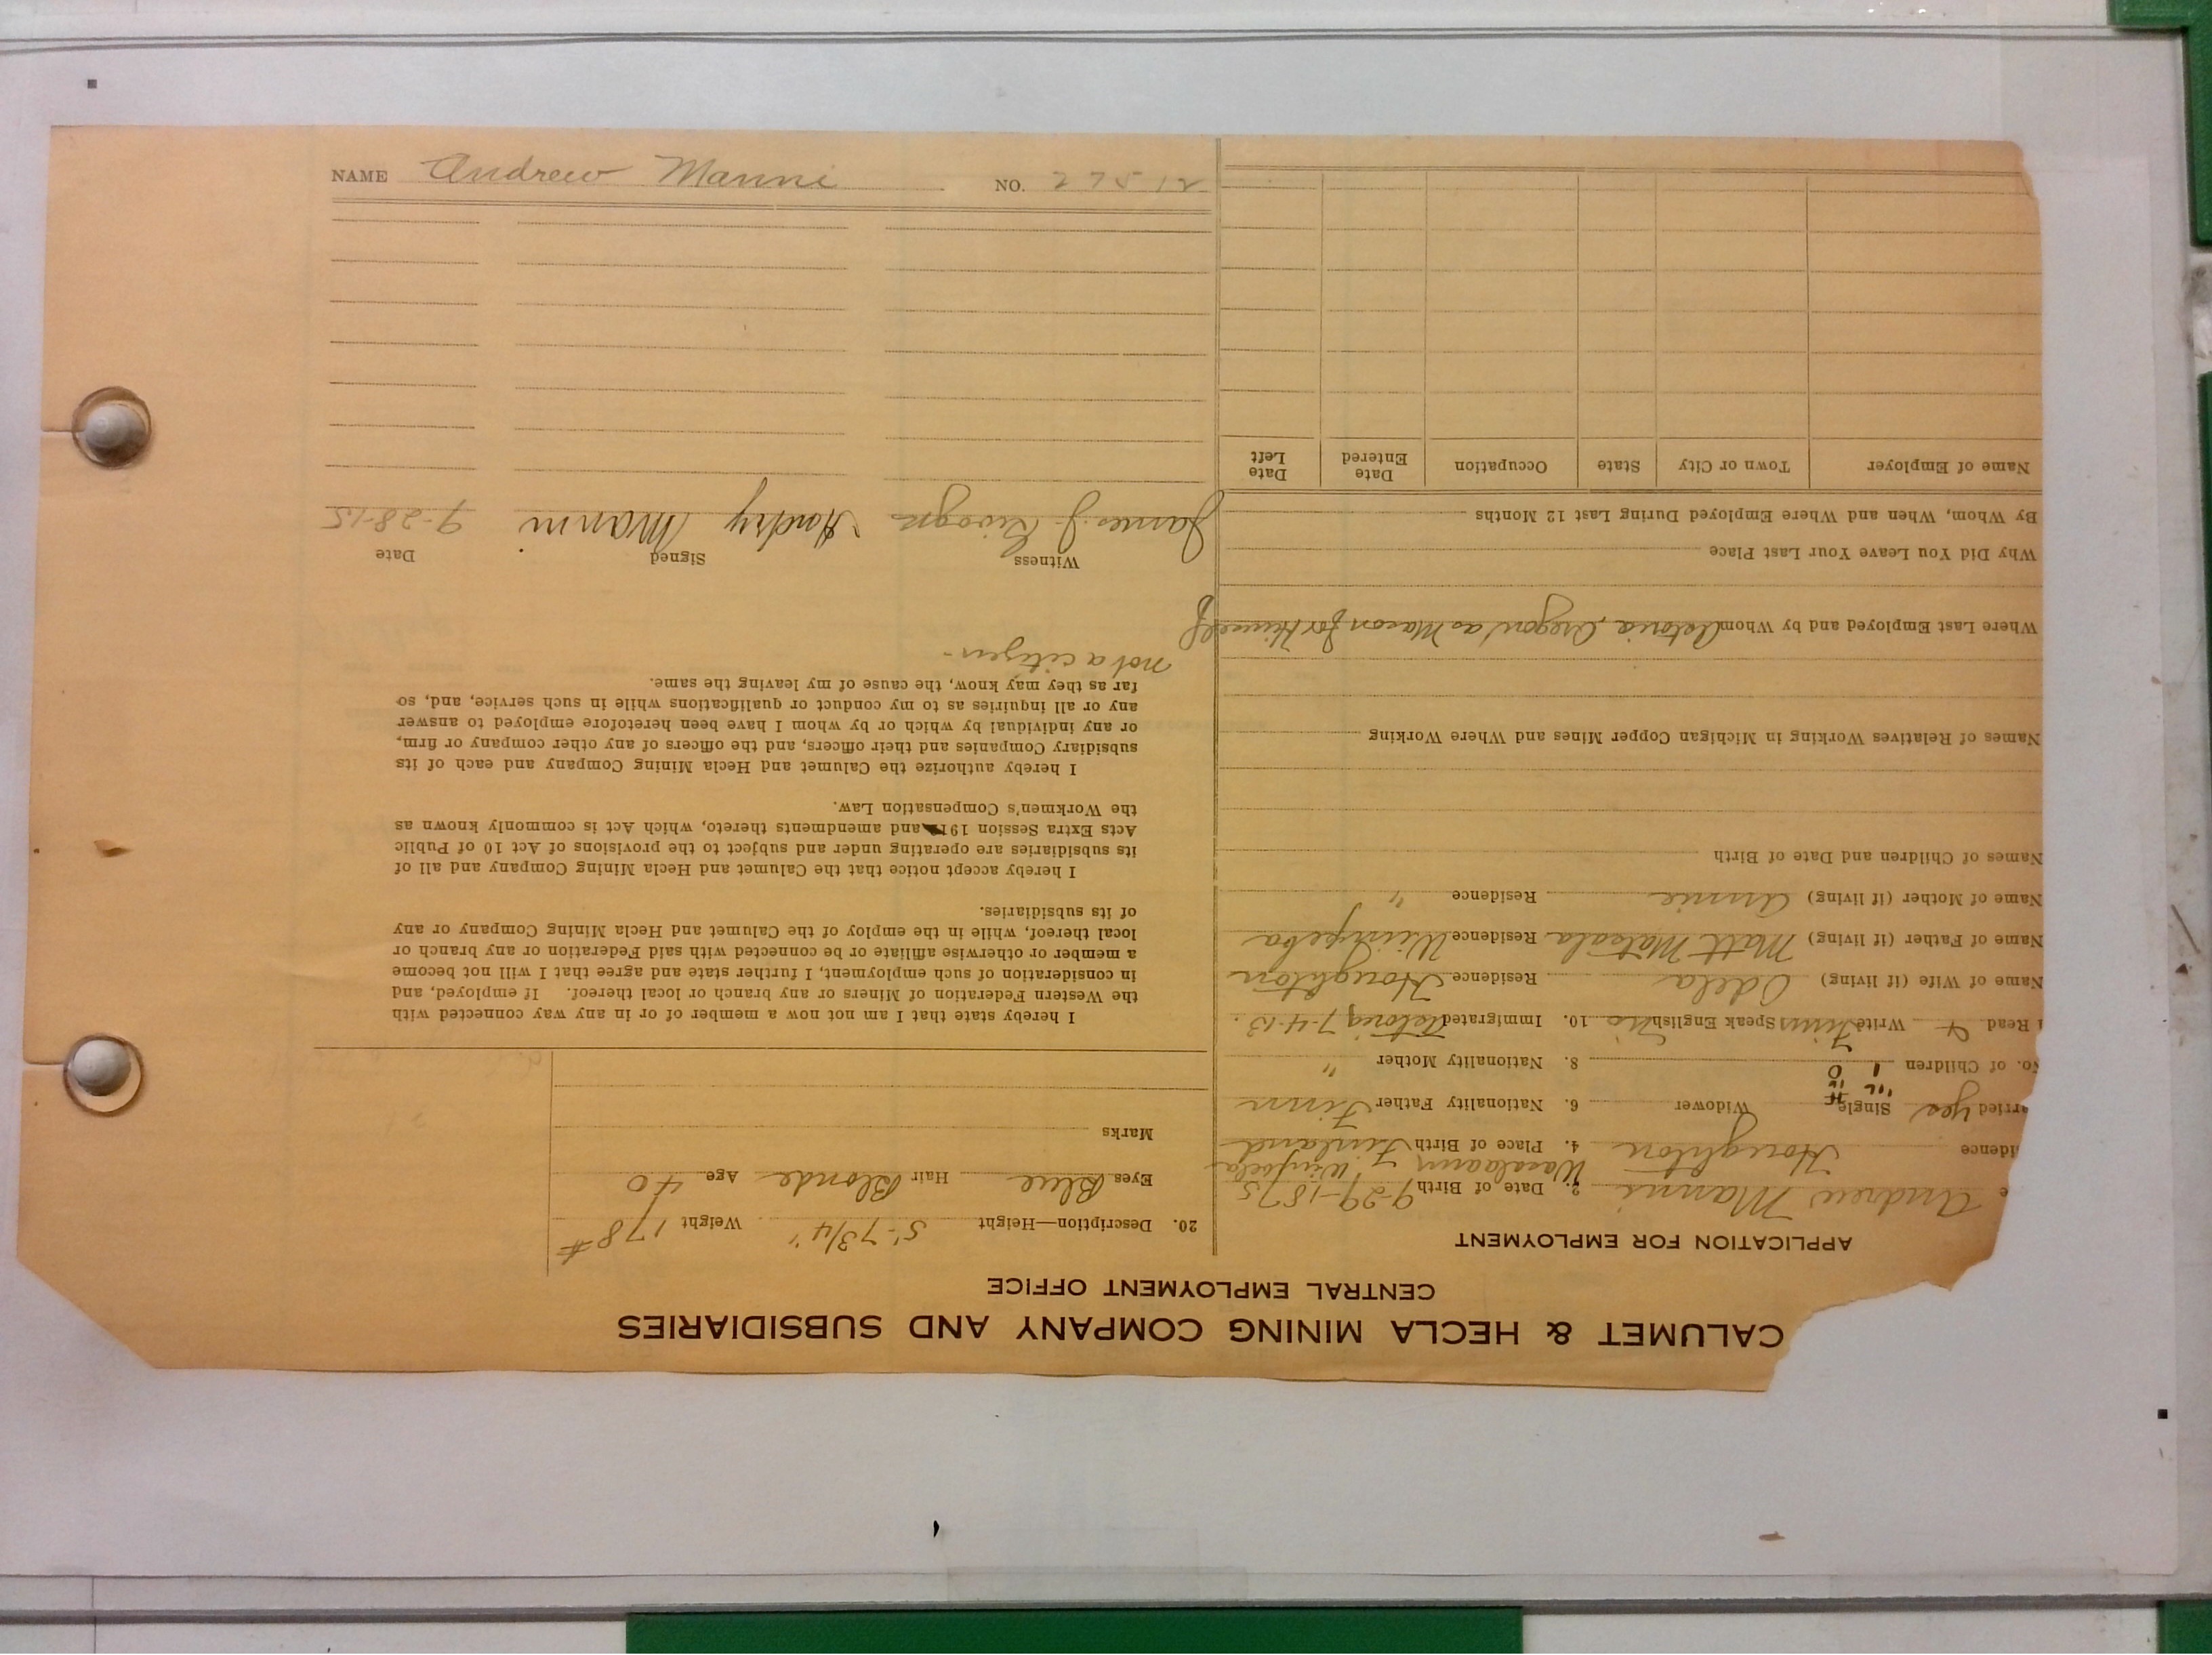 NAME Andrew Manni NO. 27512
CALUMET & HECLA MINING COMPANY AND SUBSIDIARIES
CENTRAL EMPLOYMENT OFFICE
APPLICATION FOR EMPLOYMENT
e Andrew Manni 2. Date of Birth 9-29-1875
idence Houghton 4. Place of Birth Finland
arried yes Single Widower 6. Nationality Father Finn
No. of Children 1 0 8. Nationality Mother "
Read Write Finn Speak English No 10. Immigrated Astoria 7-4-13.
Name of Wife (if living) Odela Residence Houghton
Name of Father (if living) Matt Matsala Residence
Name of Mother (if living) Annie Residence "
Names of Children and Date of Birth
Names of Relatives Working in Michigan Copper Mines and Where Working
Where Last Employed and by Whom Astoria, Oregon as Mason for Himself
Why Did You Leave Your Last Place
By Whom, When and Where Employed During Last 12 Months
Name of Employer Town or City State Occupation Date Entered Date Left
20. Description—Height 5'-7 3/4" Weight 178#
Eyes Blue Hair Blonde Age 40
Marks
I hereby state that I am not now a member of or in any way connected with
the Western Federation of Miners or any branch or local thereof. If employed, and
in consideration of such employment, I further state and agree that I will not become
a member or otherwise affiliate or be connected with said Federation or any branch or
local thereof, while in the employ of the Calumet and Hecla Mining Company or any
of its subsidiaries.
I hereby accept notice that the Calumet and Hecla Mining Company and all of
its subsidiaries are operating under and subject to the provisions of Act 10 of Public
Acts Extra Session 191 and amendments thereto, which Act is commonly known as
the Workmen's Compensation Law.
I hereby authorize the Calumet and Hecla Mining Company and each of its
subsidiary Companies and their officers, and the officers of any other company or firm,
or any individual by which or by whom I have been heretofore employed to answer
any or all inquiries as to my conduct or qualifications while in such service, and, so
far as they may know, the cause of my leaving the same.
not a citizen -
Witness Signed Date
James J. Manni 9-28-15